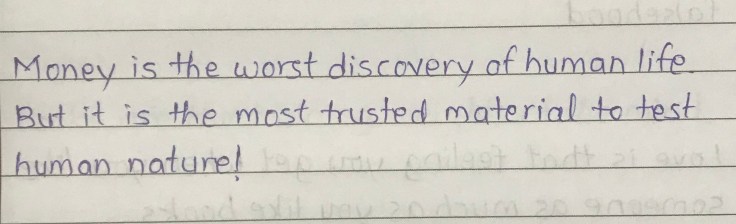 Money is the worst discovery of human life
But it is the most trusted material to test
human nature!